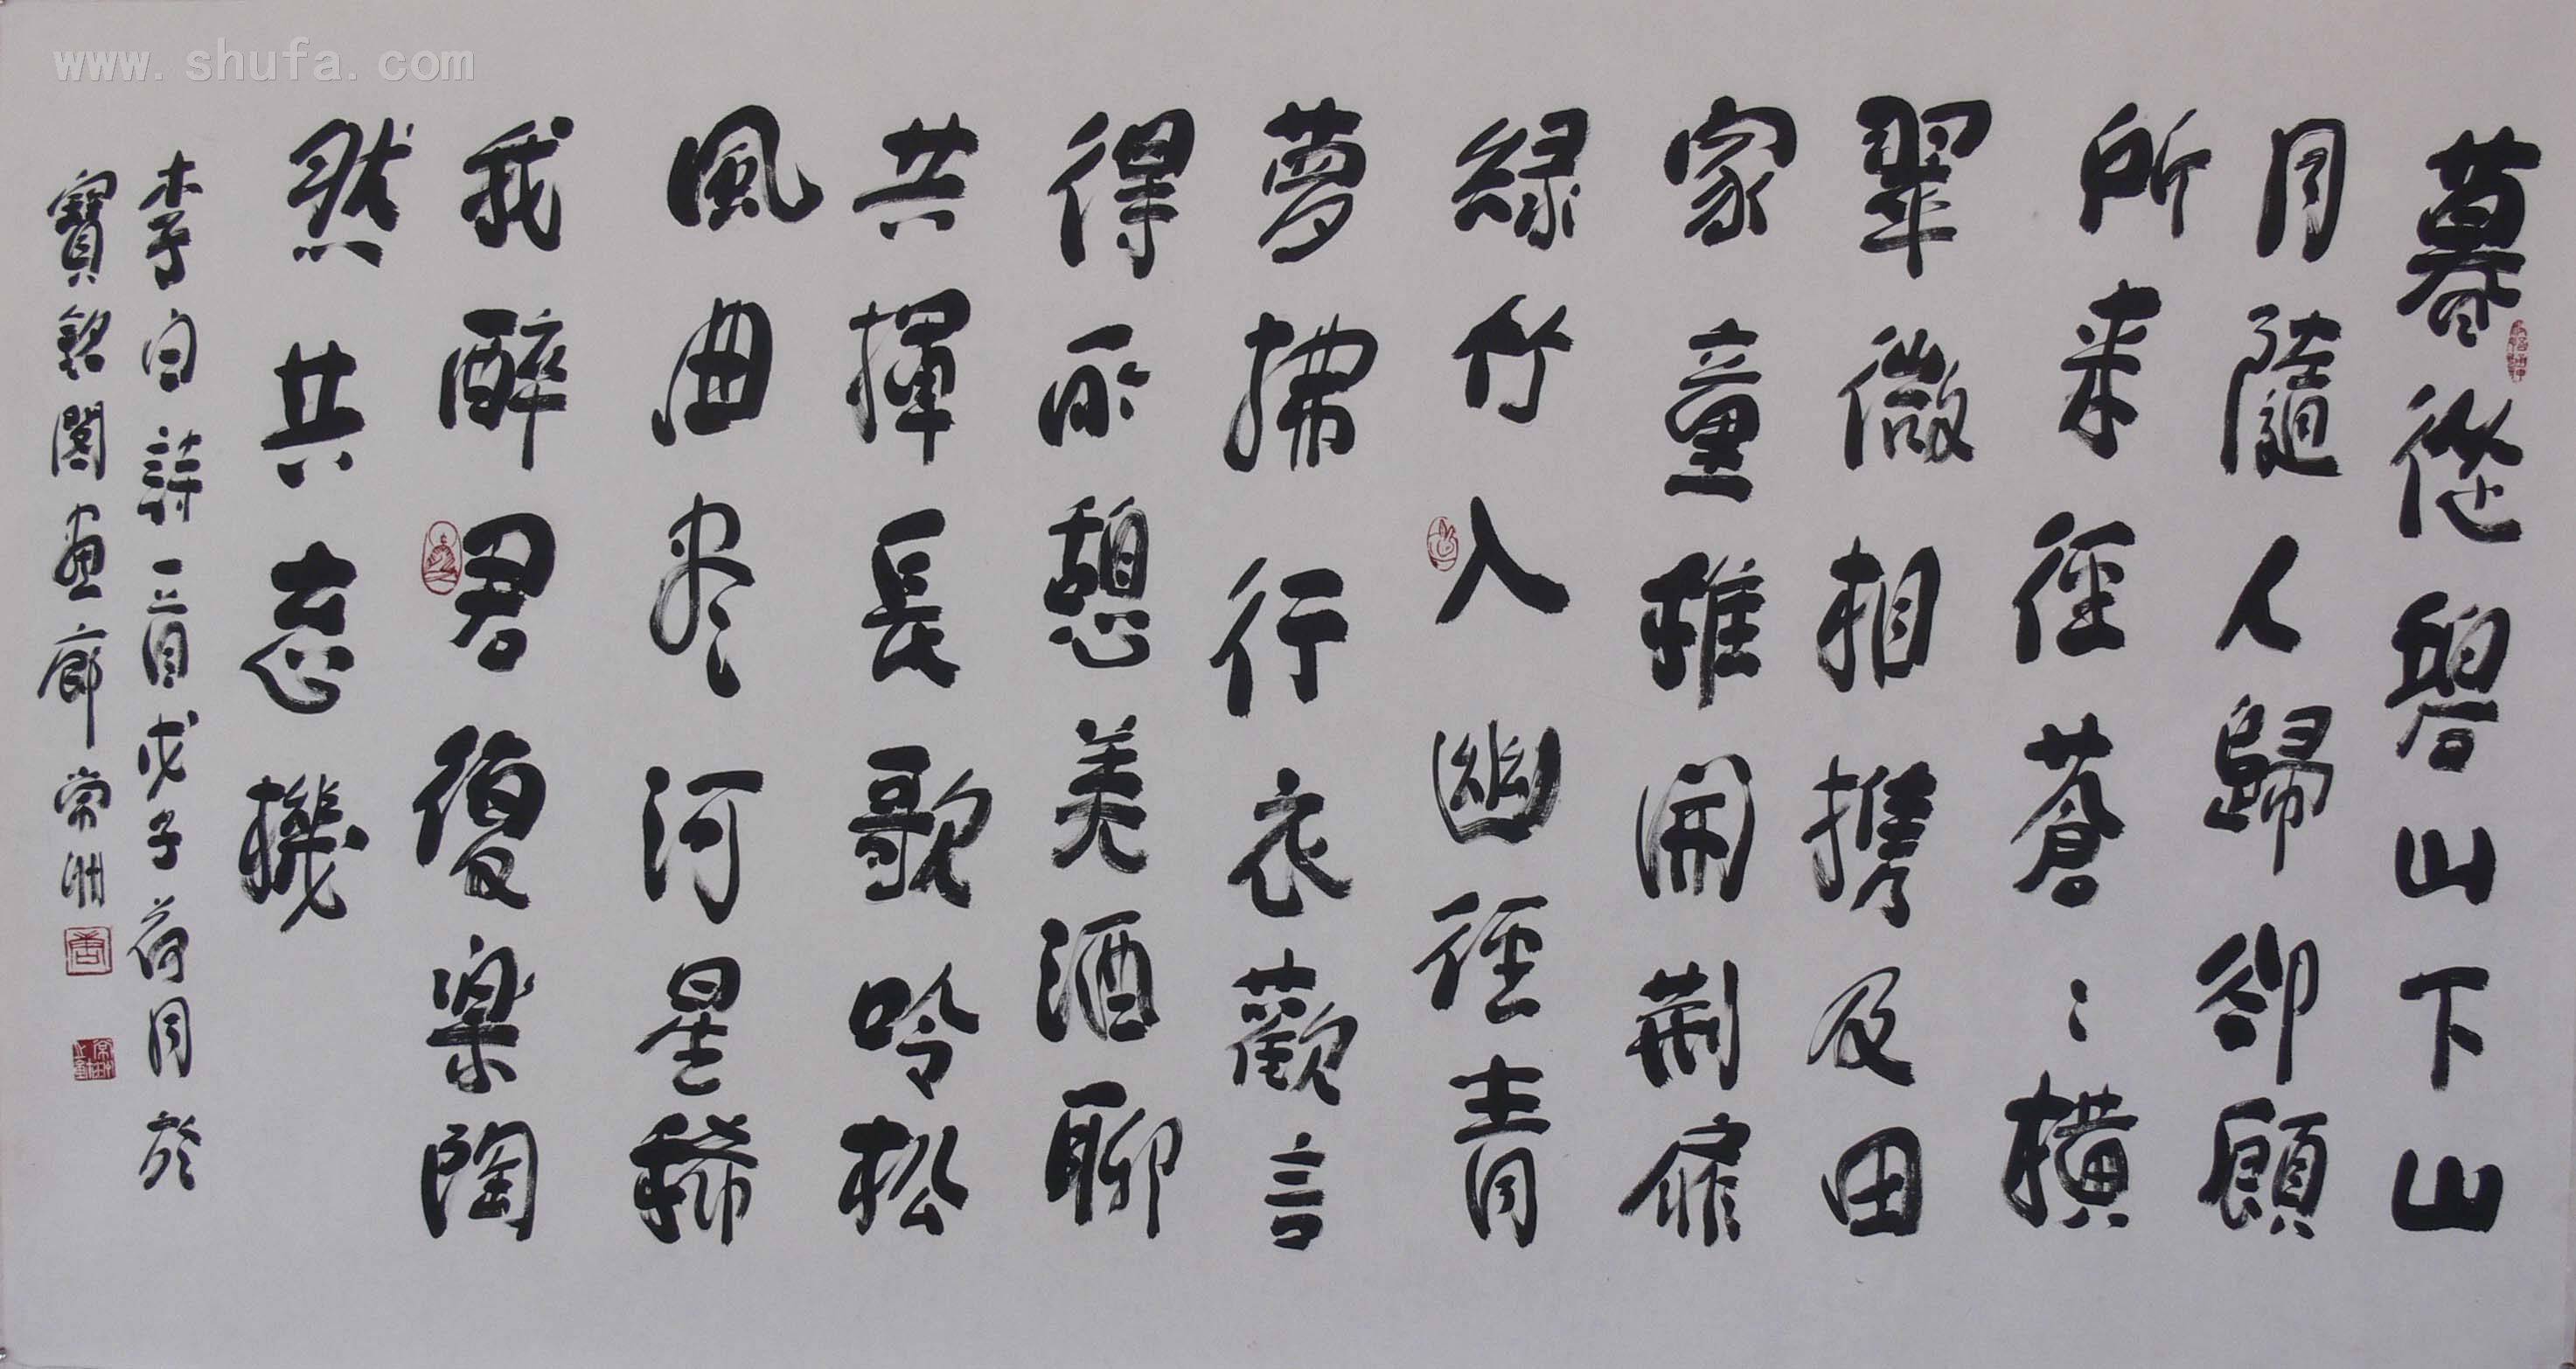 www.shufa.com
暮從碧山下山
月隨人歸卻顧
所来徑蒼々橫
翠微相携及田
家童稚開荆扉
綠竹入幽徑青
夢拂行衣歡言
得所憩美酒聊
共揮長歌吟松
風曲尽河星稀
我醉君復樂陶
然共忘機
李白詩一首戊子荷月於
寳銘閣画廊常洲